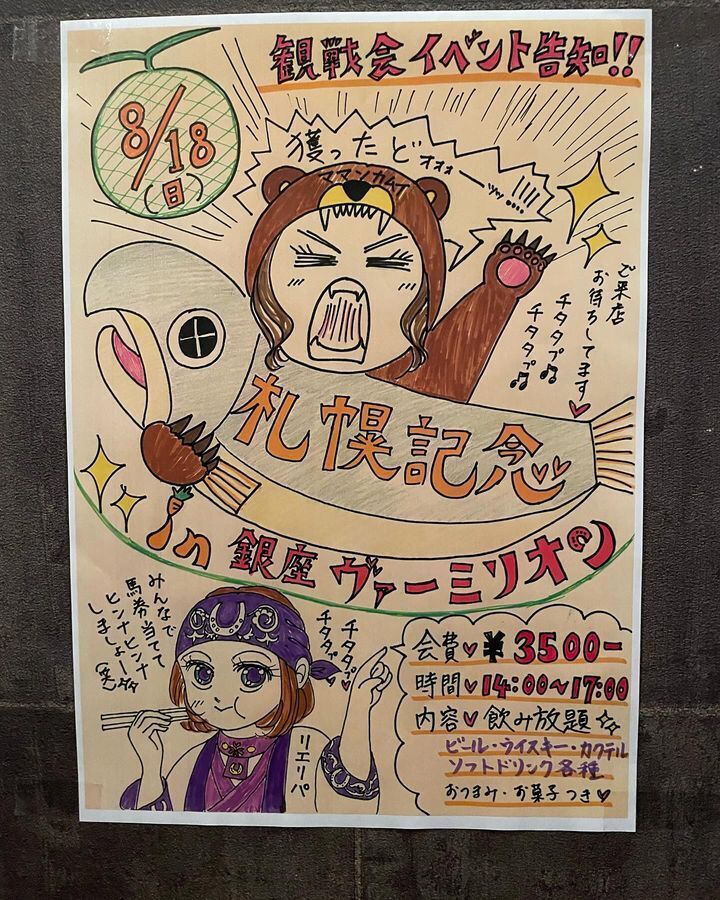 観戦会イベント告知!!
8/18
(日)
獲ったどォォォーッッ....!!!!
ママンカムイ
ご来店
お待ちしてます♥
チタタプ♫
チタタプ♫
札幌記念♡♡
in 銀座 ヴァーミリオン
みんなで
馬券当てて
ヒンナヒンナ
しましょー
(笑)
チタタプ♥
チタタプ
リエリパ
会費♥ ¥3500-
時間♥14:00〜17:00
内容♥飲み放題☆
ビール・ウイスキー・カクテル
ソフトドリンク各種
おつまみ・お菓子つき♥